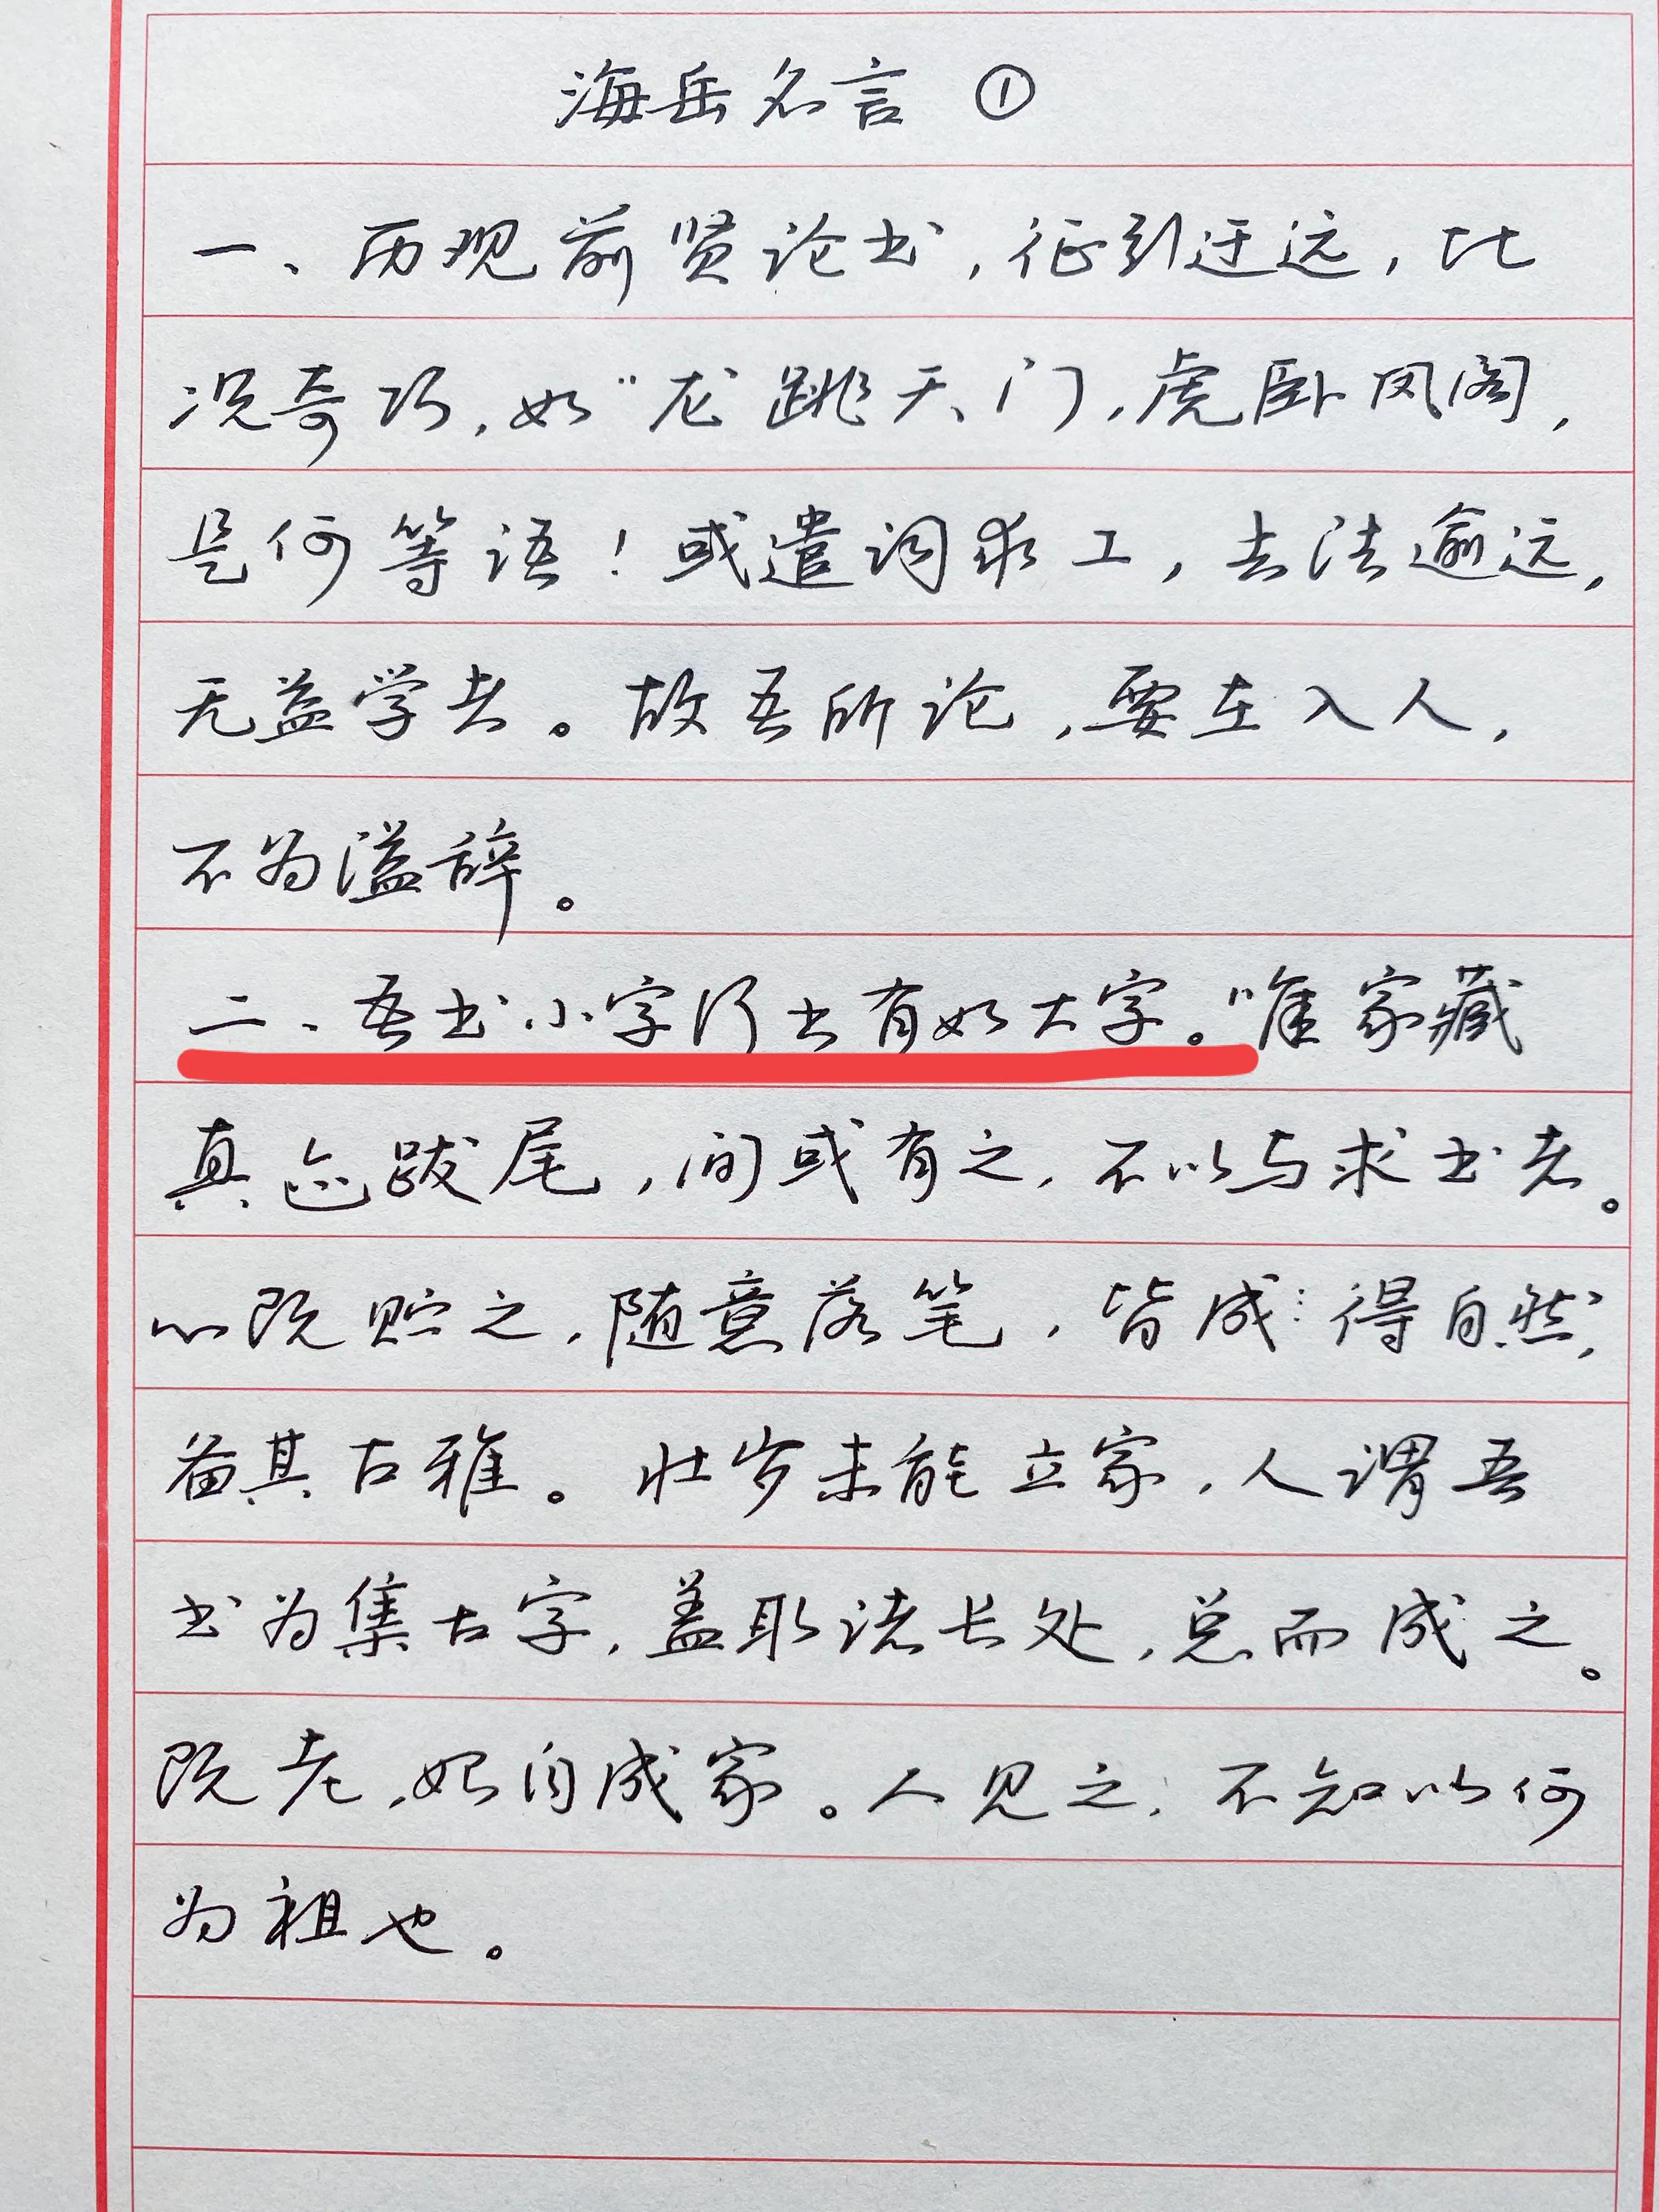 海岳名言 ①
一、历观前贤论书，征引迂远，比
况奇巧，如“龙跳天门，虎卧凤阁，
是何等语！或遣词求工，去法逾远，
无益学者。故吾所论，要在入人，
不为溢辞。
二、吾书小字行书有如大字。“唯家藏
真迹跋尾，间或有之，不以与求书者。
心既贮之，随意落笔，皆成：得自然，
备其古雅。壮岁未能立家，人谓吾
书为集古字，盖取诸长处，总而成之。
既老，始自成家。人见之，不知以何
为祖也。